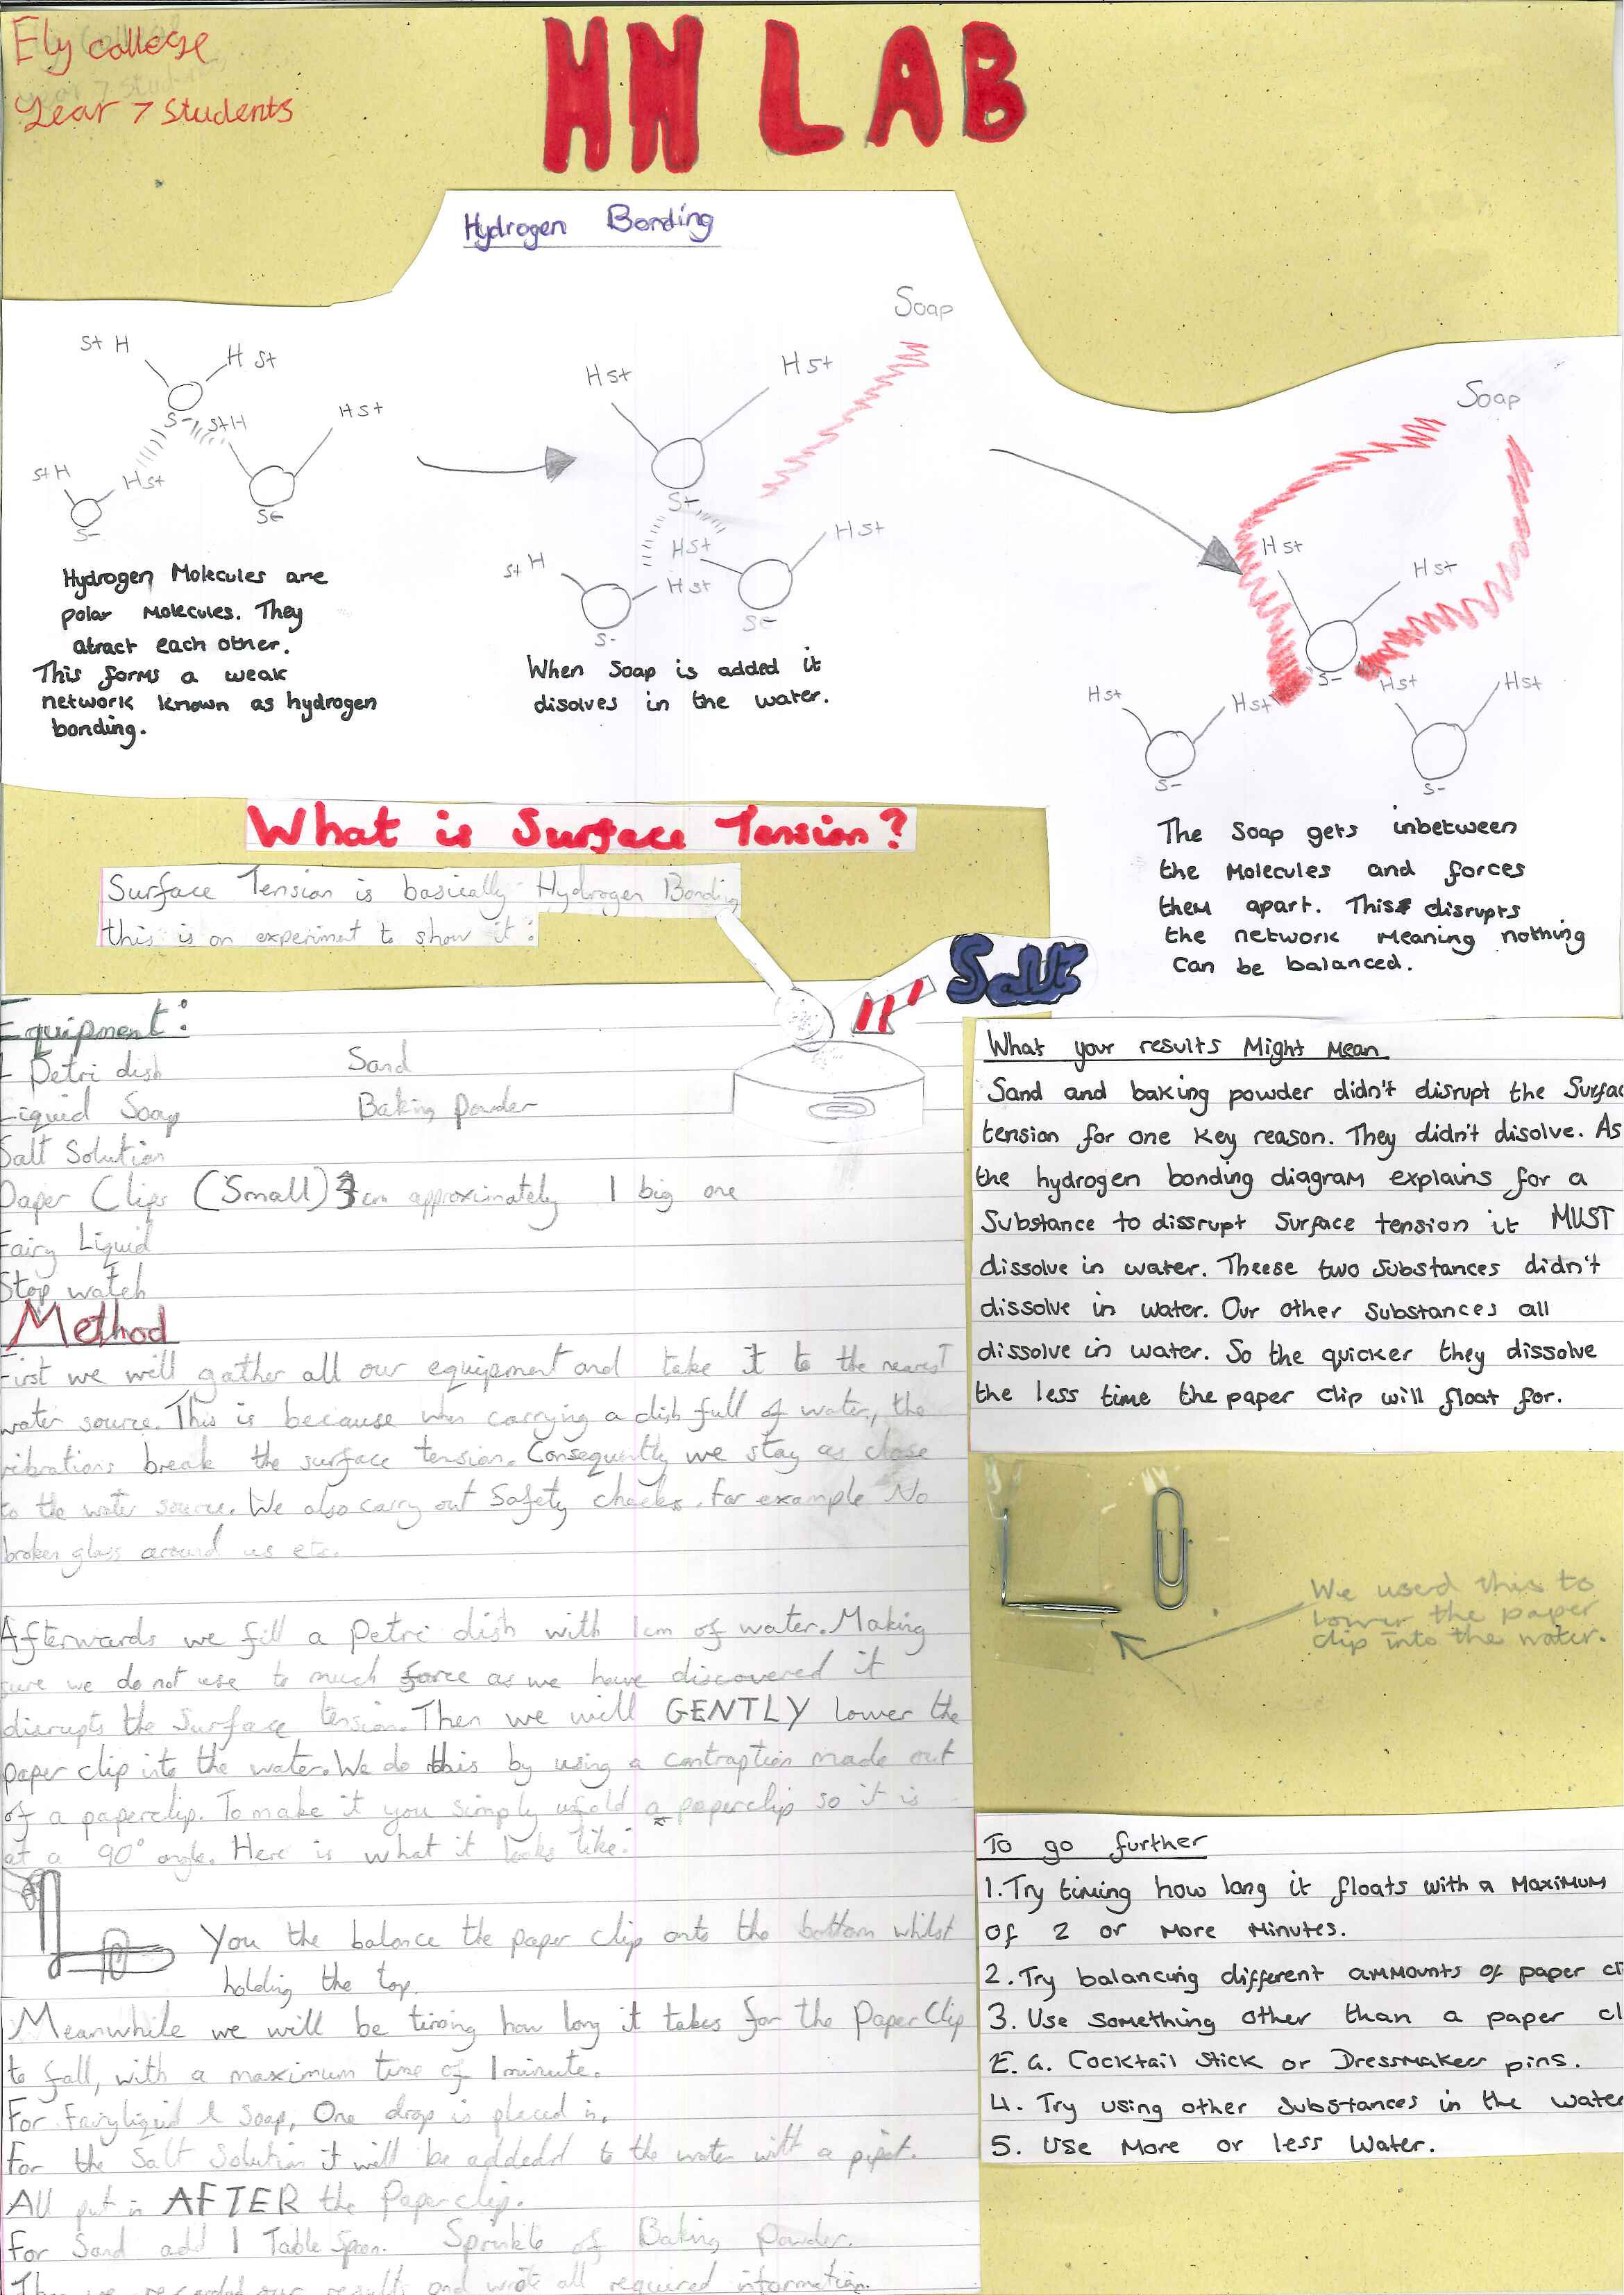 Ely college
Year 7 students
HN LAB
Hydrogen Bonding
Soap
Soap
St H
H St
S-
StH
H St
St H
H St
S-
St
H St
H St
St
H St
H St
St H
H St
S-
St
H St
H St
S-
H St
H St
H St
H St
S-
S-
Hydrogen Molecules are
polar Molecules. They
atract each other.
This forms a weak
network known as hydrogen
bonding.
When Soap is added it
disolves in the water.
The Soap gets inbetween
the Molecules and forces
them apart. This disrupts
the network Meaning nothing
can be balanced.
What is Surface Tension?
Surface Tension is basically Hydrogen Bonding
this is an experiment to show it:
Salt
Equipment:
Petri dish
Sand
Liquid Soap
Baking Powder
Salt Solution
Paper Clips (Small) 3cm approximately 1 big one
Fairy Liquid
Stop watch
Method
First we will gather all our equipment and take it to the nearest
water source. This is because when carrying a dish full of water, the
vibrations break the surface tension. Consequently we stay as close
to the water source. We also carry out Safety checks. For example No
broken glass around us etc.
Afterwards we fill a Petri dish with 1cm of water. Making
sure we do not use to much force as we have discovered it
disrupts the Surface tension. Then we will GENTLY lower the
paper clip into the water. We do this by using a contraption made out
of a paperclip. To make it you simply unfold a paperclip so it is
at a 90° angle. Here is what it looks like:
You the balance the paper clip onto the bottom whilst
holding the top.
Meanwhile we will be timing how long it takes for the Paper Clip
to fall, with a maximum time of 1 minute.
For Fairy liquid & Soap, One drop is placed in.
For the Salt Solution it will be addedd to the water with a pipet.
All put in AFTER the Paperclip.
For Sand add 1 Table Spoon. Sprinkle of Baking Powder.
we recorded our results and wrote all required information.
What your results Might Mean
Sand and baking powder didn't disrupt the Surfac
tension for one key reason. They didn't disolve. As
the hydrogen bonding diagram explains for a
Substance to dissrupt Surface tension it MUST
dissolve in water. Theese two Substances didn't
dissolve in water. Our other Substances all
dissolve in water. So the quicker they dissolve
the less time the paper clip will float for.
We used this to
lower the paper
clip into the water.
To go further
1. Try timing how long it floats with a Maximum
of 2 or More Minutes.
2. Try balancing different ammounts of paper cl
3. Use something other than a paper cl
E.G. Cocktail Stick or Dressmakers pins.
4. Try using other Substances in the water
5. Use More or less Water.